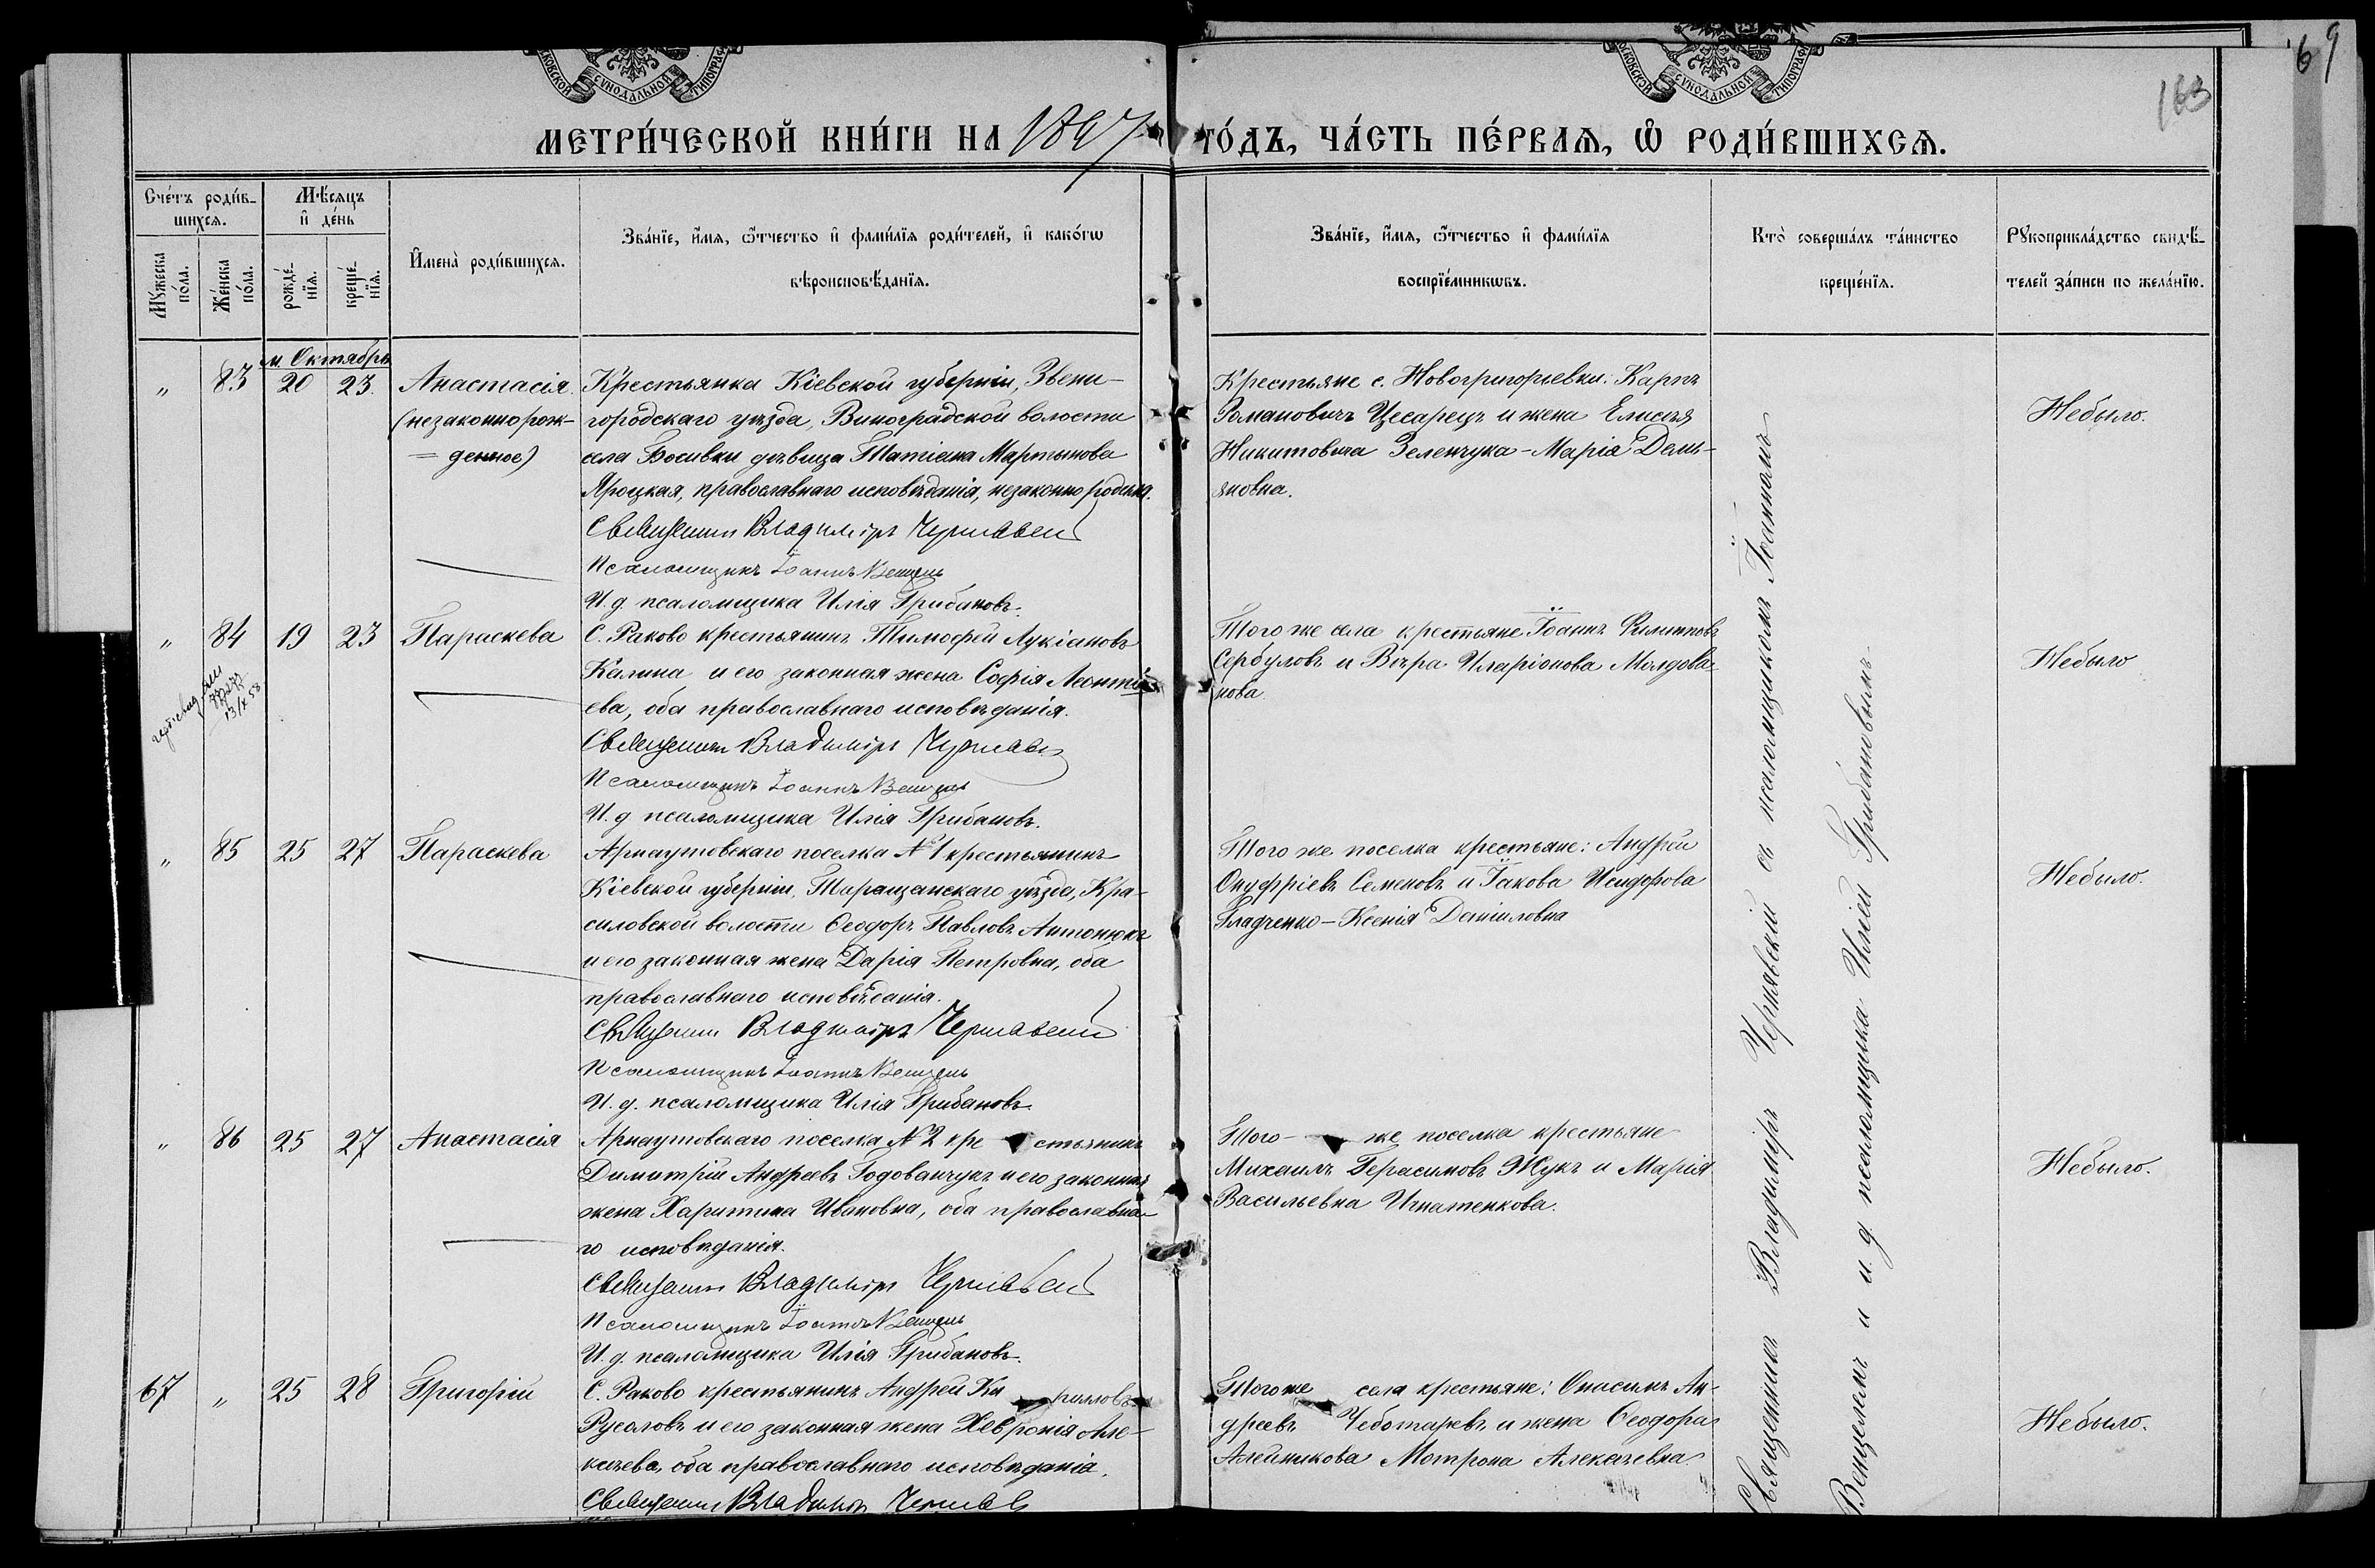 69
163
МЕТРИ́ЧЕСКОЙ КНИ́ГИ НА 1897 ГО́ДЪ, ЧА́СТЬ ПЕ́РВАѦ, Ѡ РОДИ́ВШИХСѦ.
Сче́тъ роди́в-
шихся.
Му́жеска по́ла.
Же́нска по́ла.
Мѣ́сяцъ
и де́нь
рожде́-
нїя.
креще́-
нїя.
Имена̀ роди́вшихся.
Зва́нїе, и́мя, ѻ́тчество и фами́лїя роди́телей, и како́гѡ
вѣроисповѣ́данїя.
Зва́нїе, и́мя, ѻ́тчество и фами́лїя
воспрїе́мникѡвъ.
Кто̀ соверша́лъ та́инство
креще́нїя.
Рꙋкоприкла́дство свидѣ́-
телей за́писи по жела́нїю.
м. Октябрь
" 83 20 23. Анастасія
(незаконнорож-
= денное)
Крестьянка Кіевской губерніи, Звени-
городскаго уѣзда, Виноградской волости
села Босивки дѣвица Татіана Мартынова
Яроцкая, православнаго исповѣданія, незаконно родила.
Священникъ Владиміръ Чернявскій
Псаломщикъ Іоаннъ Венцель
И. д. псаломщика Илія Грибановъ.
Крестьяне с. Новогригорьевки: Карпъ
Романовичъ Цесарецъ и жена Елисея
Никитовича Зеленчука - Марія Демь-
яновна.
Небыло.
" 84 19 23 Параскева
13/X 53
С. Раково крестьянинъ Тимофей Лукіановъ
Калина и его законная жена Софія Леонті-
ева, оба православнаго исповѣданія.
Священникъ Владиміръ Чернявскій
Псаломщикъ Іоаннъ Венцель
И. д. псаломщика Илія Грибановъ.
Того же села крестьяне Іоаннъ Филипповъ
Сербуловъ и Вѣра Иларіонова Молдова-
нова.
Небыло
" 85 25 27 Параскева
Арнаутовскаго поселка №1 крестьянинъ
Кіевской губерніи, Таращанскаго уѣзда, Кра-
силовской волости Ѳеодоръ Павловъ Антонюкъ
и его законная жена Дарія Петровна, оба
православнаго исповѣданія.
Священникъ Владиміръ Чернявскій
Псаломщикъ Іоаннъ Венцель
И. д. псаломщика Илія Грибановъ.
Того же поселка крестьяне: Андрей
Онуфріевъ Семеновъ и Іакова Исидорова
Гладченко - Ксенія Даніиловна
Небыло.
" 86 25 27 Анастасія
Арнаутовскаго поселка №2 кре стьянинъ
Димитрій Андреевъ Годованчукъ и его законная
жена Харитина Ивановна, оба православна-
го исповѣданія.
Священникъ Владиміръ Чернявскій
Псаломщикъ Іоаннъ Венцель
И. д. псаломщика Илія Грибановъ.
Того - же поселка крестьяне
Михаилъ Герасимовъ Жукъ и Марія
Васильевна Игнатенкова.
Небыло.
67 " 25 28 Григорій
С. Раково крестьянинъ Андрей Ки рилловъ
Русоловъ и его законная жена Хевронія Але-
ксѣева, оба православнаго исповѣданія.
Священникъ Владиміръ Чернявскій
Того же села крестьяне: Онисимъ Ан-
дреевъ Чеботаревъ и жена Ѳеодора
Алейникова Мотрона Алексѣевна.
Небыло.
Священникъ Владиміръ Чернявскій съ псаломщикомъ Іоанномъ
Венцелемъ и и. д. псаломщика Иліей Грибановымъ.